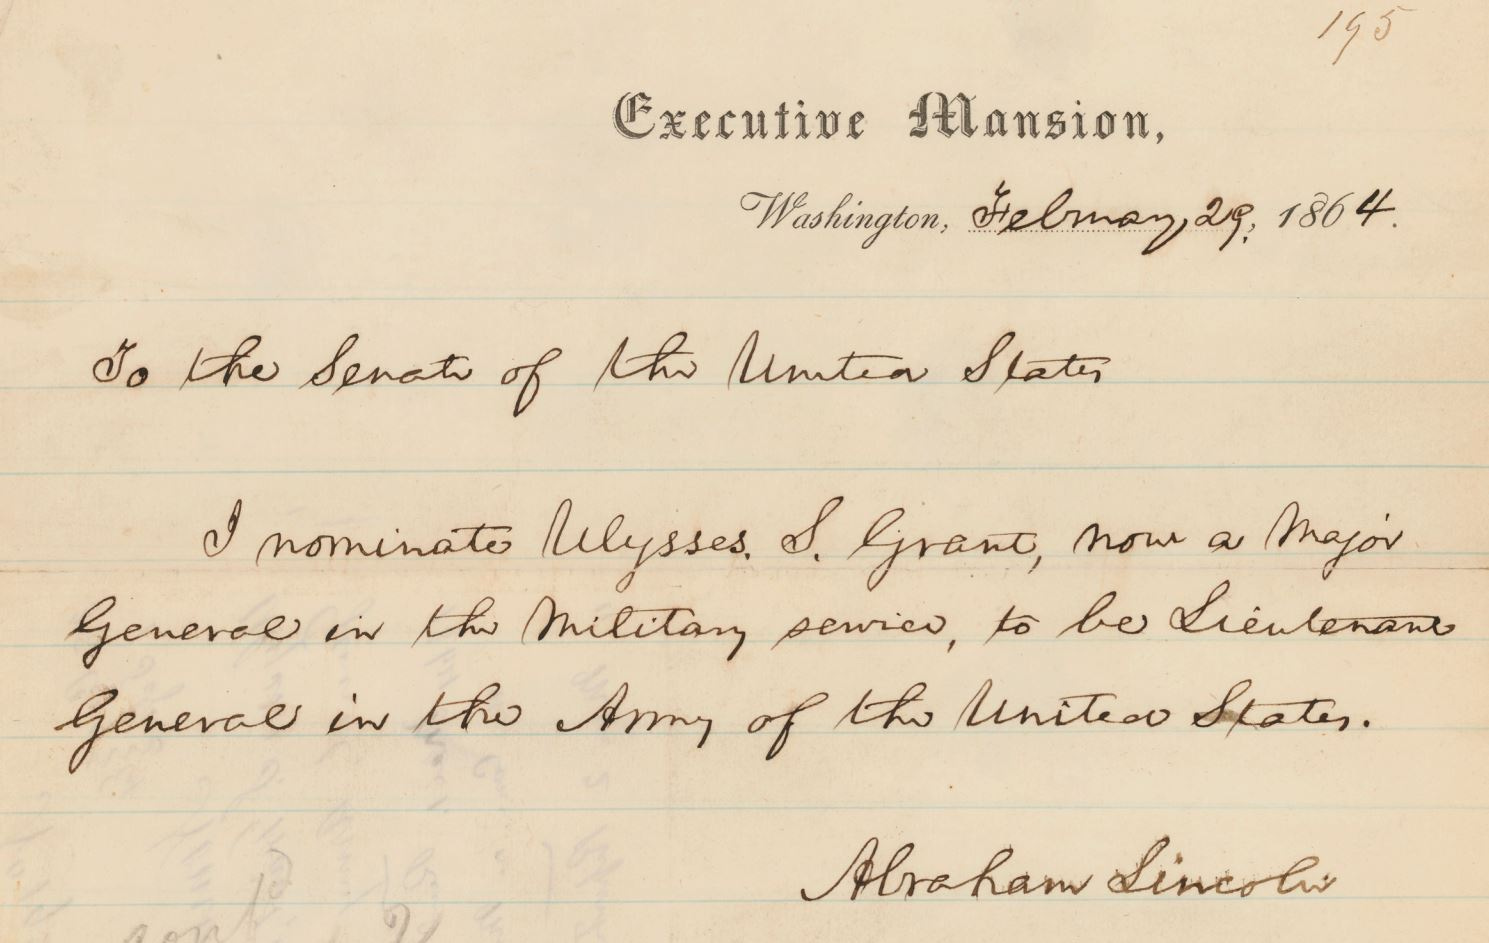 195
Executive Mansion,
Washington, February 29, 1864.
To the Senate of the United States
I nominate Ulysses. S. Grant, now a Major
General in the Military service, to be Lieutenant
General in the Army of the United States.
Abraham Lincoln